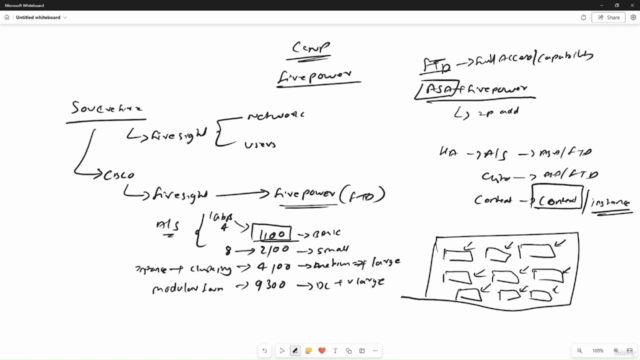 Microsoft Whiteboard
Untitled whiteboard
Share
CCNP
Firepower
Sourcefire
Firesight
Network
Users
Cisco
Firesight
Firepower (FTD)
A/S
4
1100
Basic
8
2100
Small
4100
large
9300
DC + v large
FTD
Full Access/Capability
ASA
Firepower
IP add
HA
A/S
ASA/FTD
FTD
Context
Context
/ instance
100%